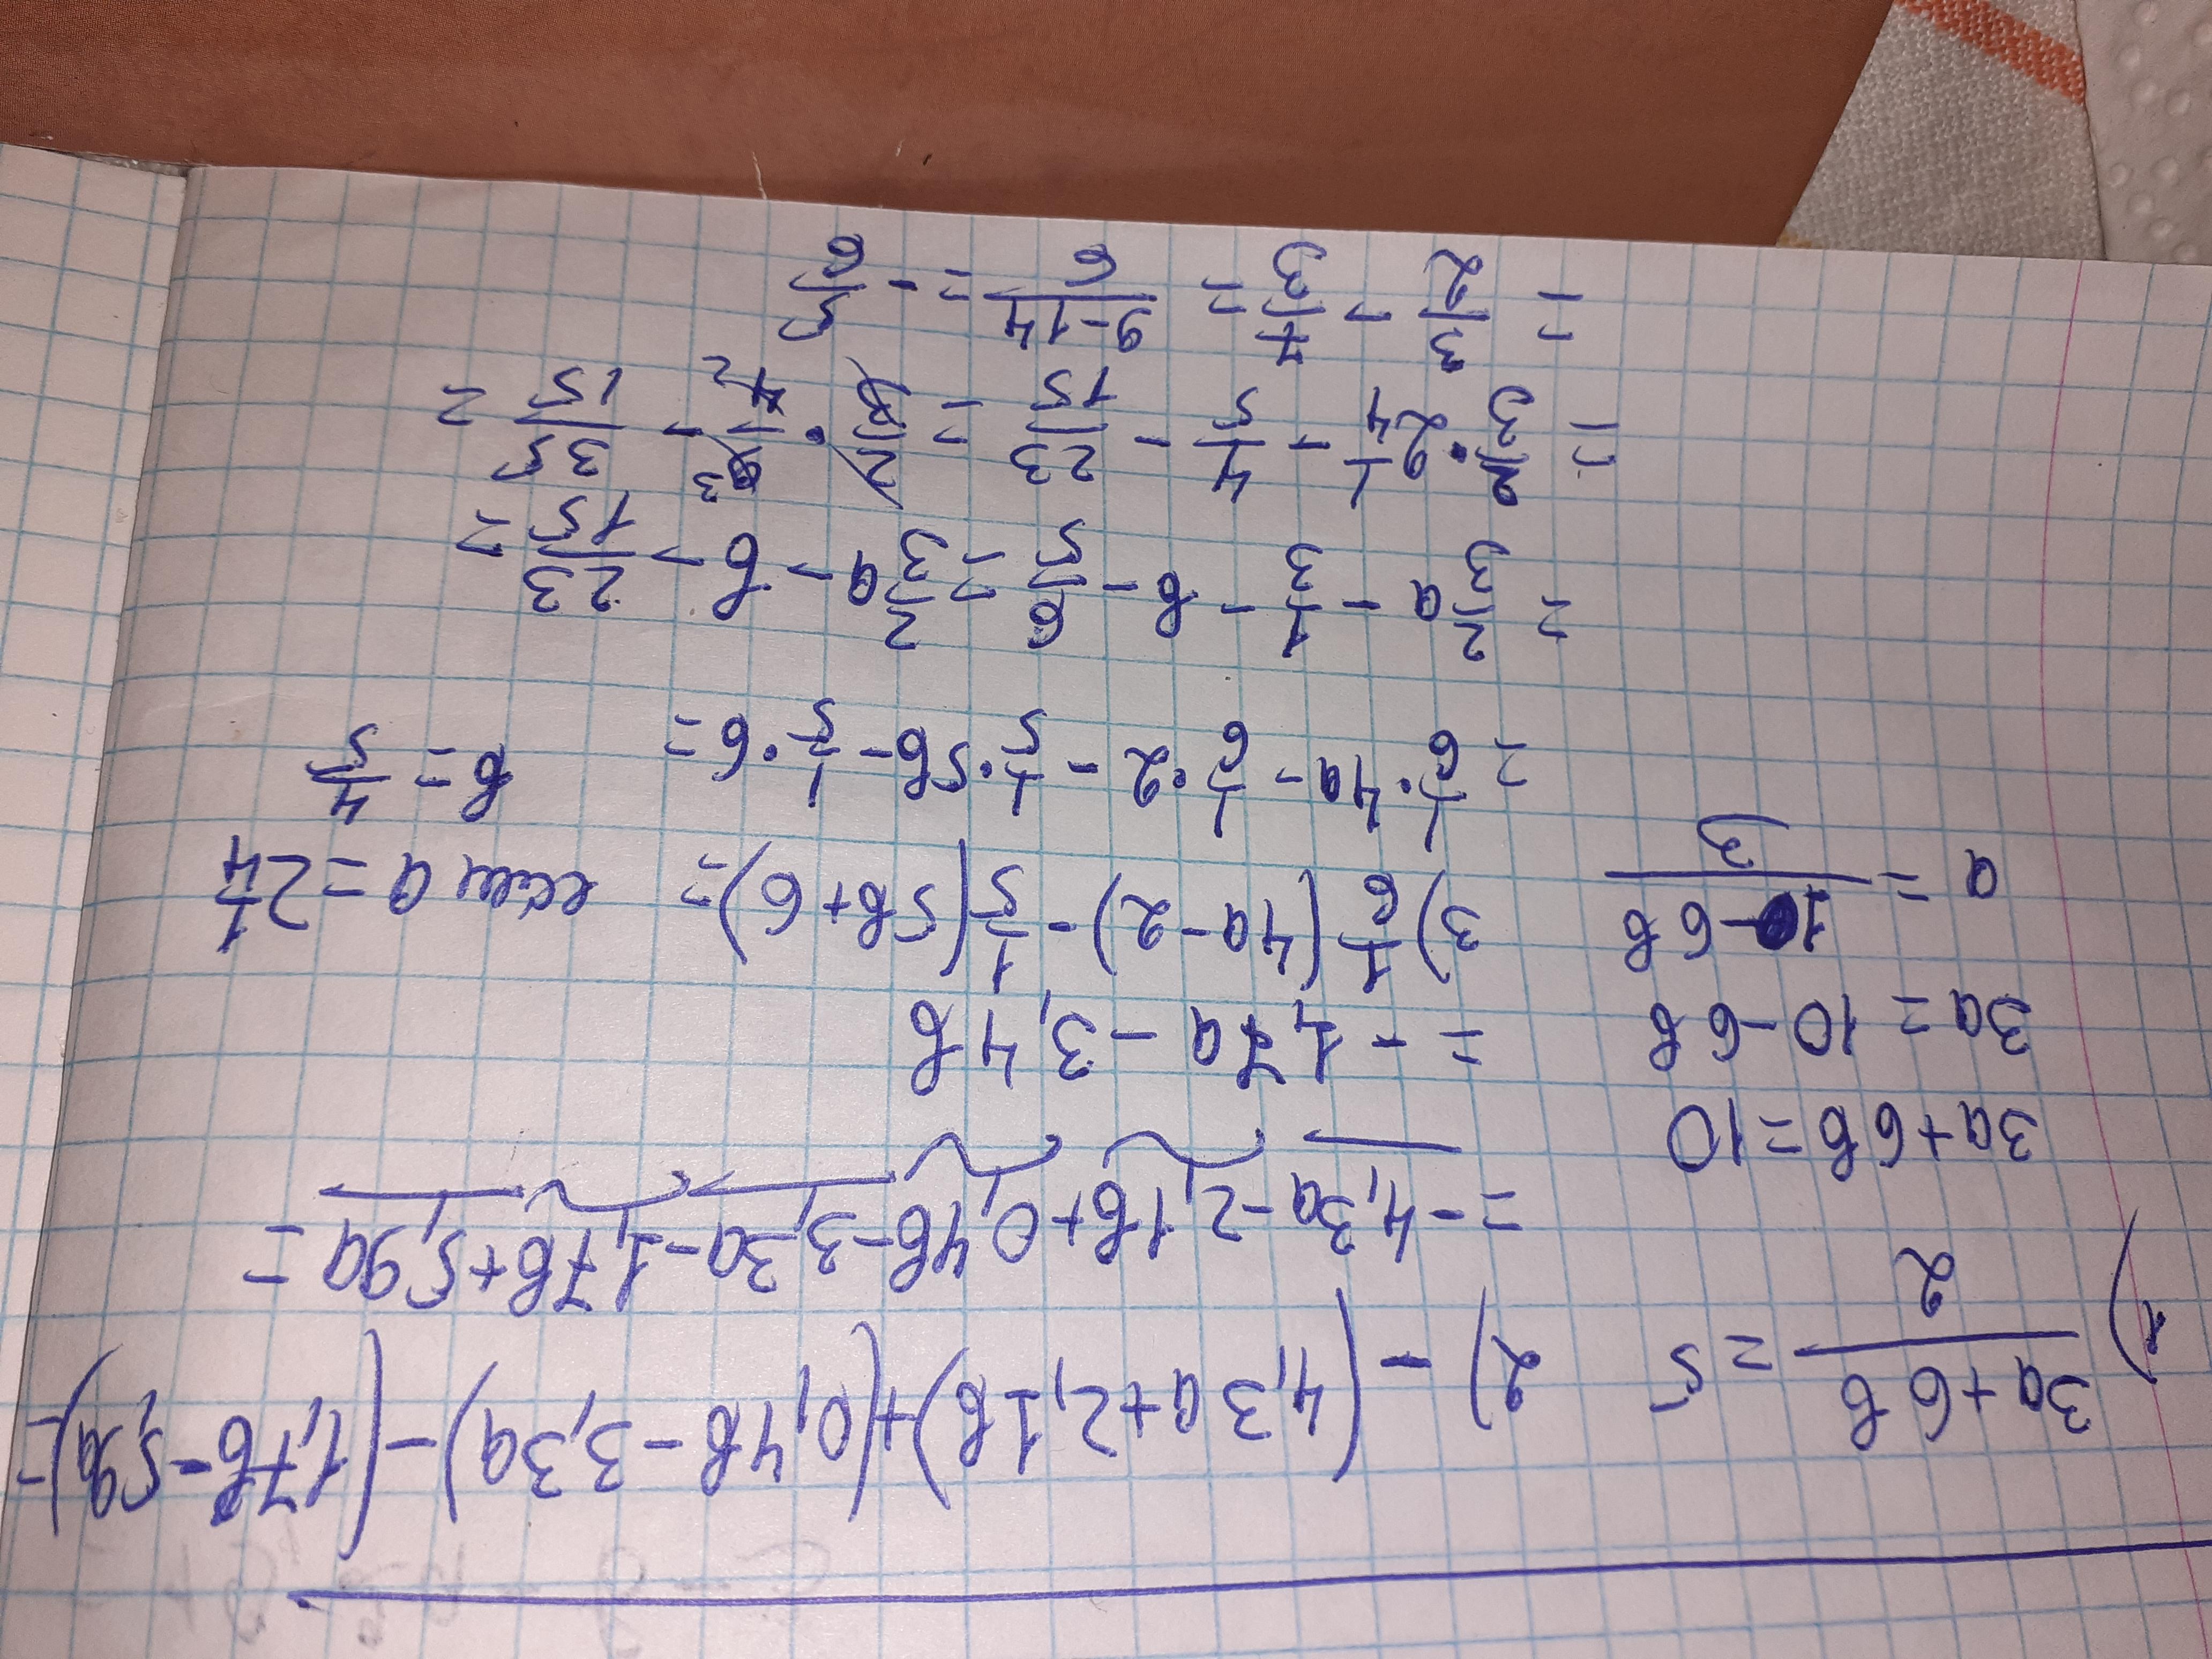 1) (3a+6b)/2 = 5
3a+6b=10
3a = 10-6b
a = (10-6b)/3
2) -(4,3a+2,1b)+(0,4b-3,3a)-(1,7b-5,9a)=
=-4,3a-2,1b+0,4b-3,3a-1,7b+5,9a=
= -1,7a - 3,4b
3) 1/6(4a-2)-1/5(5b+6)= если a=2 1/4
b = 4/5
=1/6·4a-1/6·2-1/5·5b-1/5·6=
=2/3a-1/3-b-6/5=2/3a-b-23/15=
=2/3·2 1/4-4/5-23/15=2/3·9/4-35/15=
=3/2-7/3=(9-14)/6=-5/6